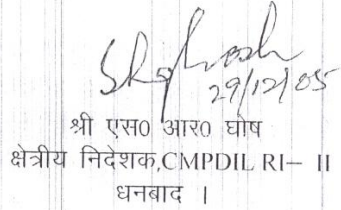 29/12/05
श्री एस० आर० घोष
क्षेत्रीय निदेशक,CMPDIL RI– II
धनबाद ।